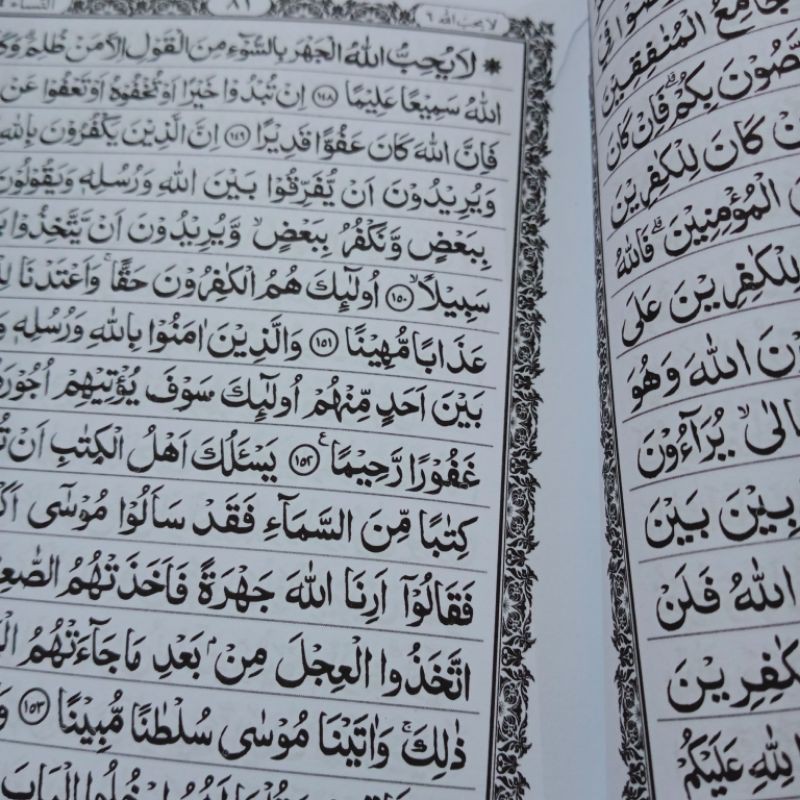 لا يحب الله ٦
٨١
النساء
* لَا يُحِبُّ اللّٰهُ الْجَهْرَ بِالسُّوْۤءِ مِنَ الْقَوْلِ اِلَّا مَنْ ظُلِمَ ۗ
اللّٰهُ سَمِيْعًا عَلِيْمًا ١٤٨ اِنْ تُبْدُوْا خَيْرًا اَوْ تُخْفُوْهُ اَوْ تَعْفُوْا عَنْ
فَاِنَّ اللّٰهَ كَانَ عَفُوًّا قَدِيْرًا ١٤٩ اِنَّ الَّذِيْنَ يَكْفُرُوْنَ بِاللّٰهِ
وَيُرِيْدُوْنَ اَنْ يُّفَرِّقُوْا بَيْنَ اللّٰهِ وَرُسُلِهٖ وَيَقُوْلُوْنَ
بِبَعْضٍ وَّنَكْفُرُ بِبَعْضٍۙ وَّيُرِيْدُوْنَ اَنْ يَّتَّخِذُوْا
سَبِيْلًاۙ ١٥٠ اُولٰۤىِٕكَ هُمُ الْكٰفِرُوْنَ حَقًّاۚ وَاَعْتَدْنَا
عَذَابًا مُّهِيْنًا ١٥١ وَالَّذِيْنَ اٰمَنُوْا بِاللّٰهِ وَرُسُلِهٖ
بَيْنَ اَحَدٍ مِّنْهُمْ اُولٰۤىِٕكَ سَوْفَ يُؤْتِيْهِمْ
غَفُوْرًا رَّحِيْمًا ࣖ ١٥٢ يَسْـَٔلُكَ اَهْلُ الْكِتٰبِ اَنْ
كِتٰبًا مِّنَ السَّمَاۤءِ فَقَدْ سَاَلُوْا مُوْسٰٓى
فَقَالُوْٓا اَرِنَا اللّٰهَ جَهْرَةً فَاَخَذَتْهُمُ
اتَّخَذُوا الْعِجْلَ مِنْۢ بَعْدِ مَا جَاۤءَتْهُمُ
ذٰلِكَۚ وَاٰتَيْنَا مُوْسٰى سُلْطٰنًا مُّبِيْنًا ١٥٣
الْبَابَ
جَامِعُ الْمُنٰفِقِيْنَ
بِكُمْۗ فَاِنْ كَانَ
كَانَ لِلْكٰفِرِيْنَ
الْمُؤْمِنِيْنَۗ فَاللّٰهُ
لِلْكٰفِرِيْنَ عَلَى
اللّٰهَ وَهُوَ
يُرَاۤءُوْنَ
بَيْنَ
اللّٰهُ فَلَنْ
لِلّٰهِ عَلَيْكُمْ